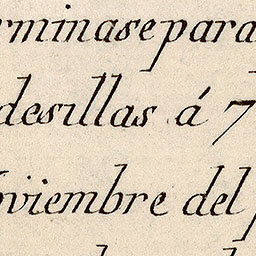 rminasepara
desillas á 7
oviembre del p